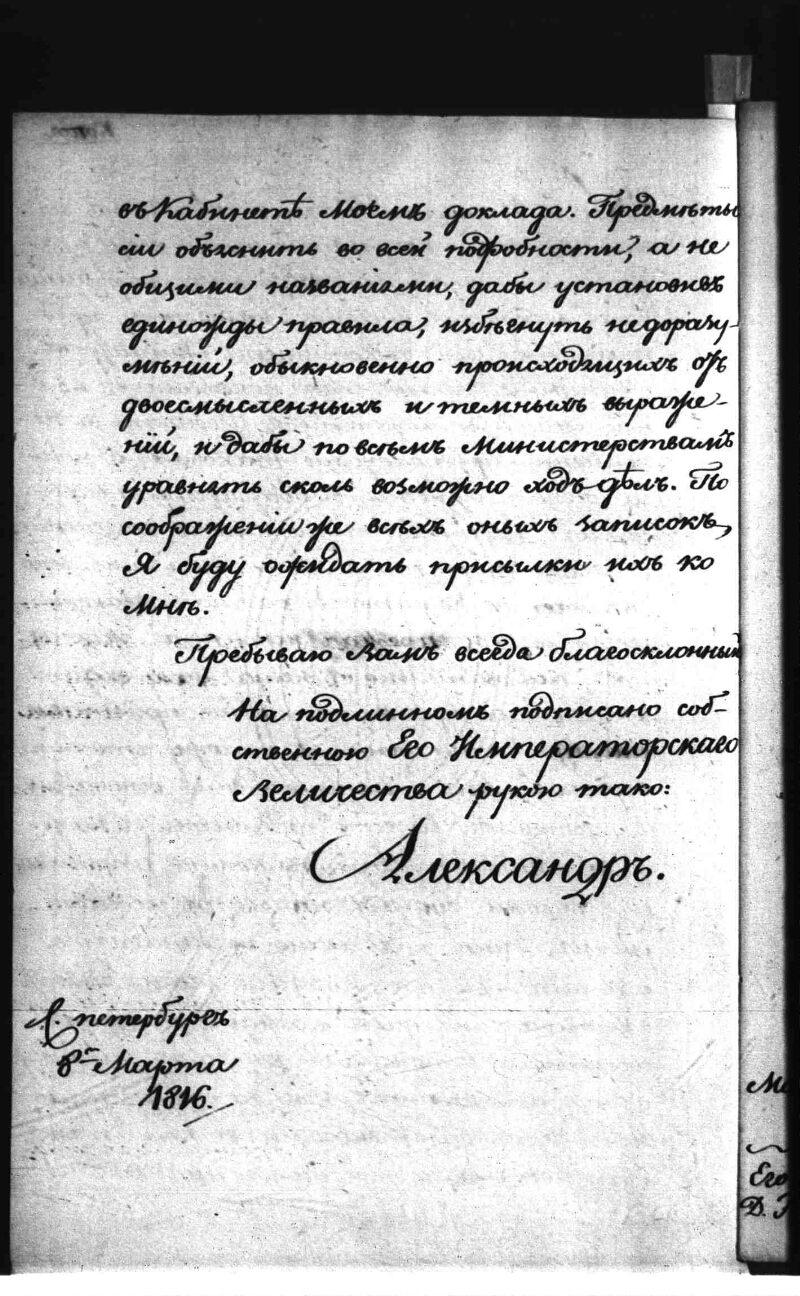 въ Кабинетѣ Моемъ доклада. Предмѣты
сіи объяснить во всей подробности, а не
общими названіями, дабы установивъ
единожды правила, избѣгнуть недоразу-
мѣній, обыкновенно происходящихъ отъ
двоесмысленныхъ и темныхъ выраже-
ній, и дабы по всѣмъ Министерствамъ
уравнять сколь возможно ходъ дѣлъ. По
соображеніи же всѣхъ оныхъ записокъ,
Я буду ожидать присылки ихъ ко
Мнѣ.
Пребываю Вамъ всегда благосклонный
На подлинномъ подписано соб-
ственною Его Императорскаго
Величества рукою тако:
Александръ.
С. петербургъ
8го Марта
1816.
Его